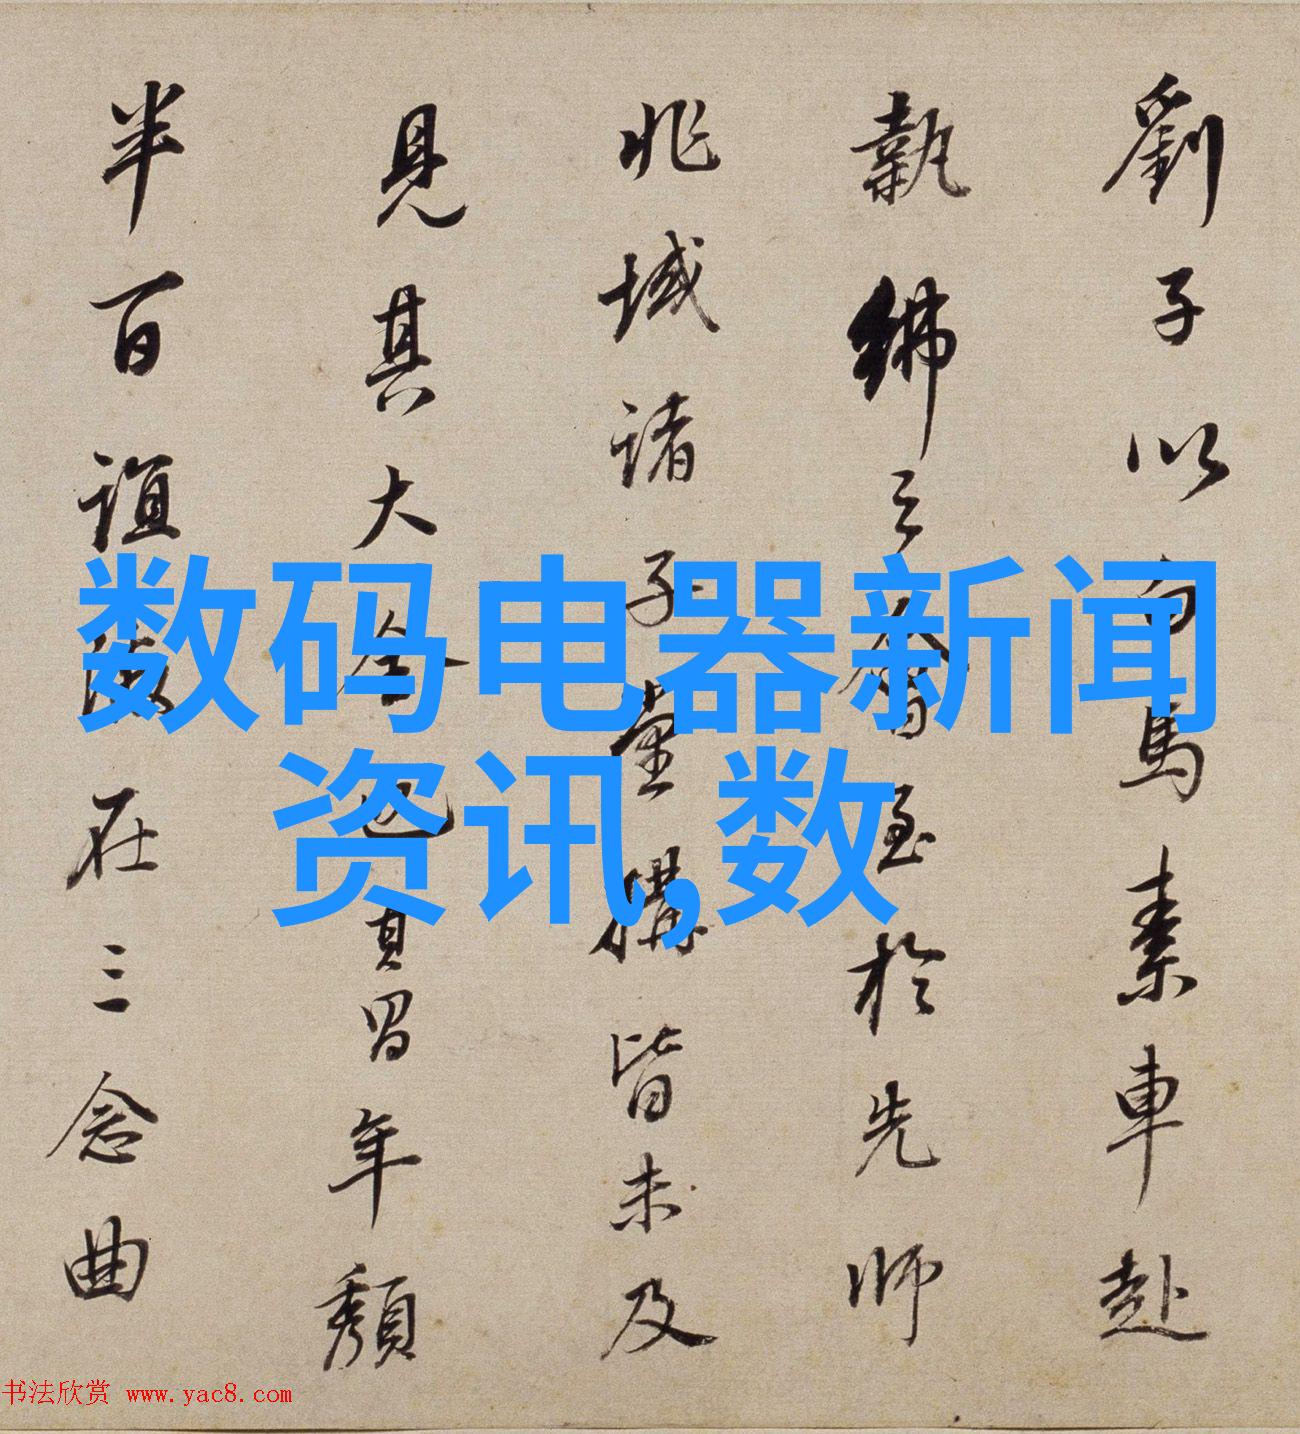 劉子以白馬素車赴
執紼之眷至於先師
兆域諸子堂構皆未及
見其大全也年頹
半百誼在三念曲
数码电器新闻
资讯,数
书法欣赏 www.yac8.com